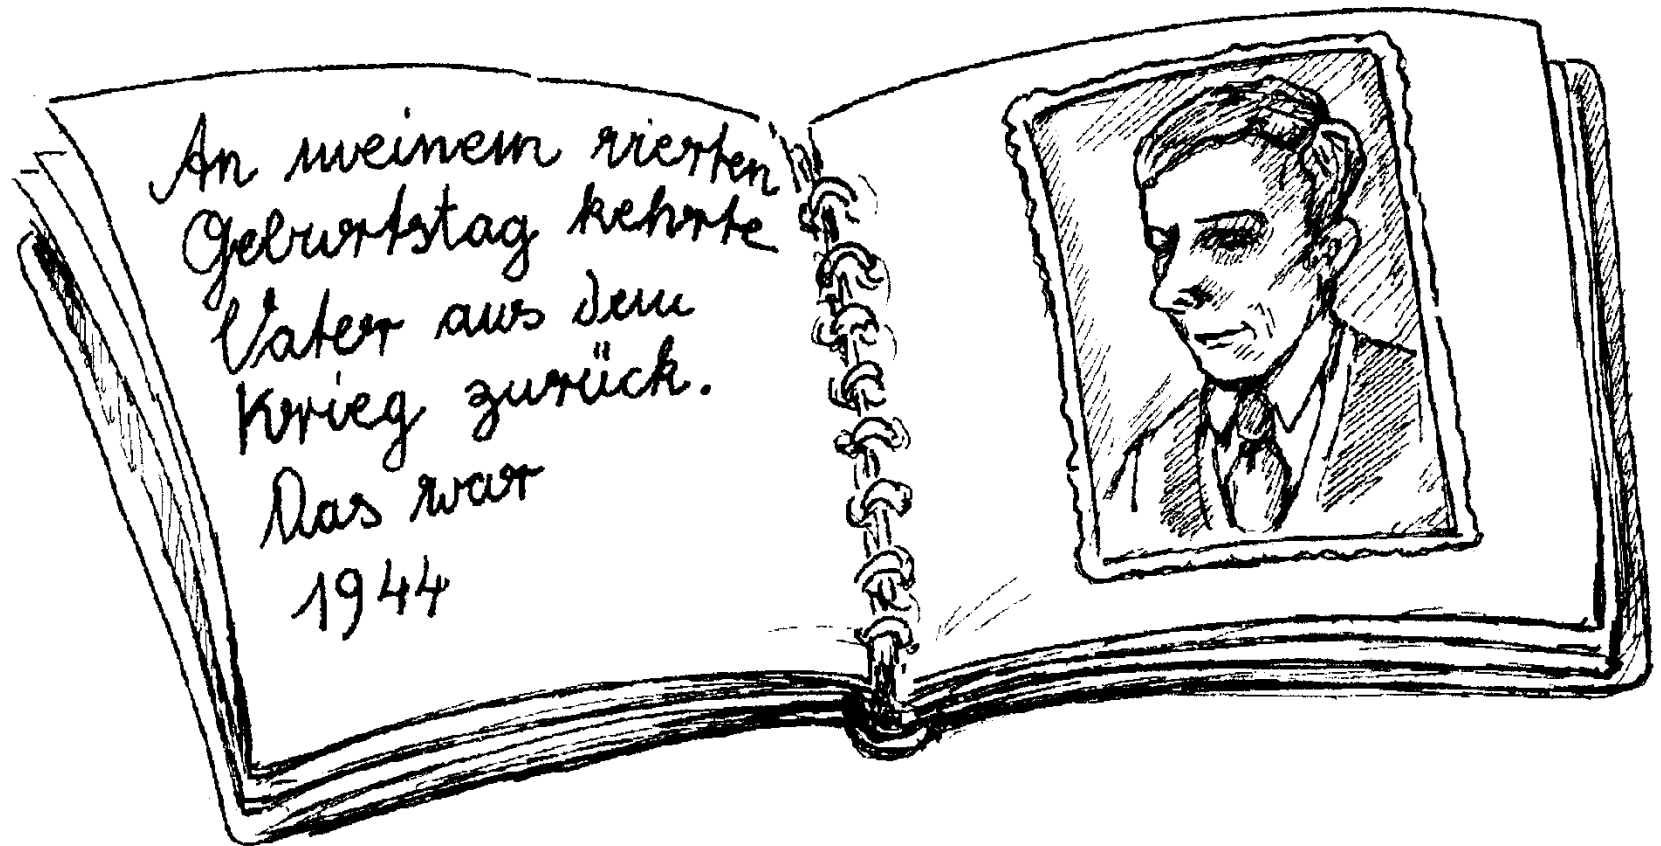 An meinem vierten
Geburtstag kehrte
Vater aus dem
Krieg zurück.
Das war
1944